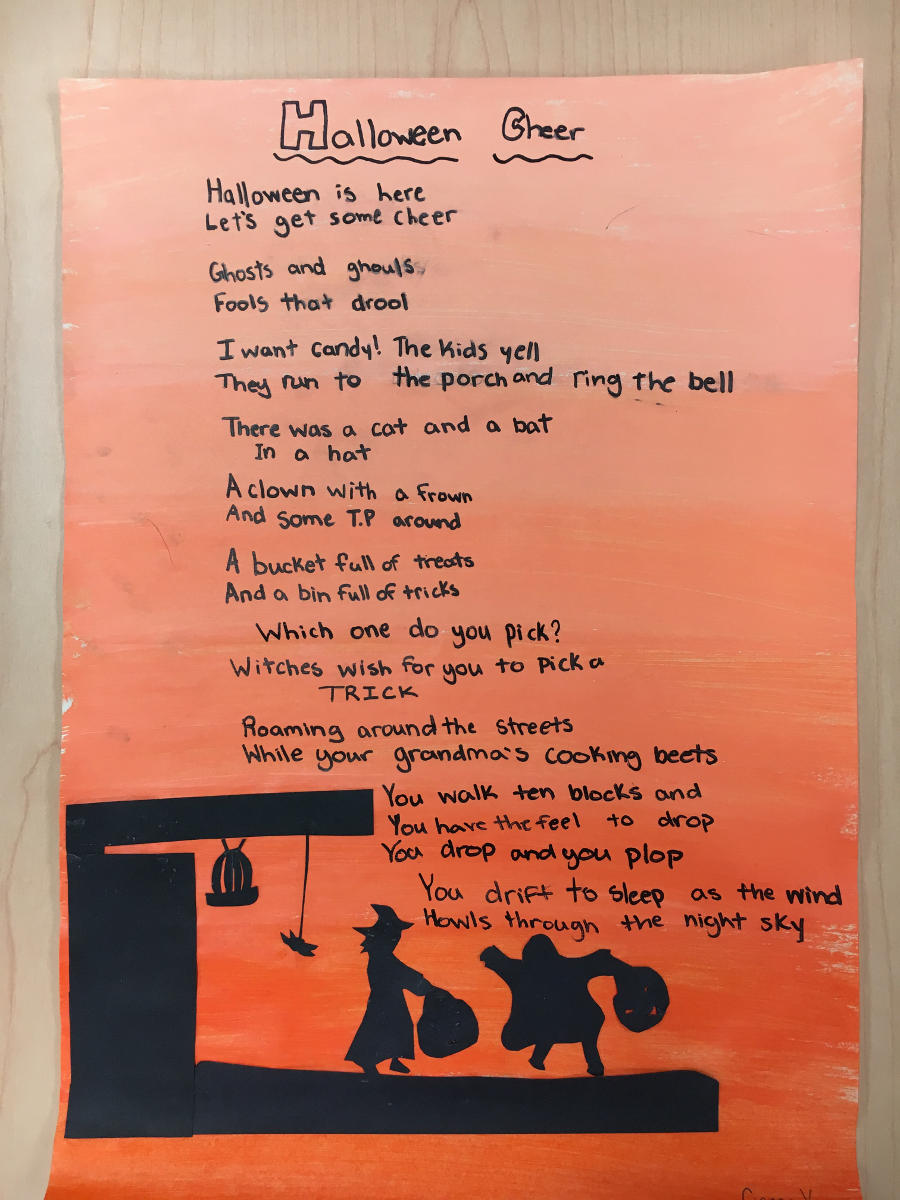 Halloween Cheer
Halloween is here
Let's get some cheer
Ghosts and ghouls
Fools that drool
I want candy! The kids yell
They run to the porch and ring the bell
There was a cat and a bat
In a hat
A clown with a frown
And some T.P around
A bucket full of treats
And a bin full of tricks
Which one do you pick?
Witches wish for you to pick a
TRICK
Roaming around the streets
While your grandma's cooking beets
You walk ten blocks and
You have the feel to drop
You drop and you plop
You drift to sleep as the wind
Howls through the night sky